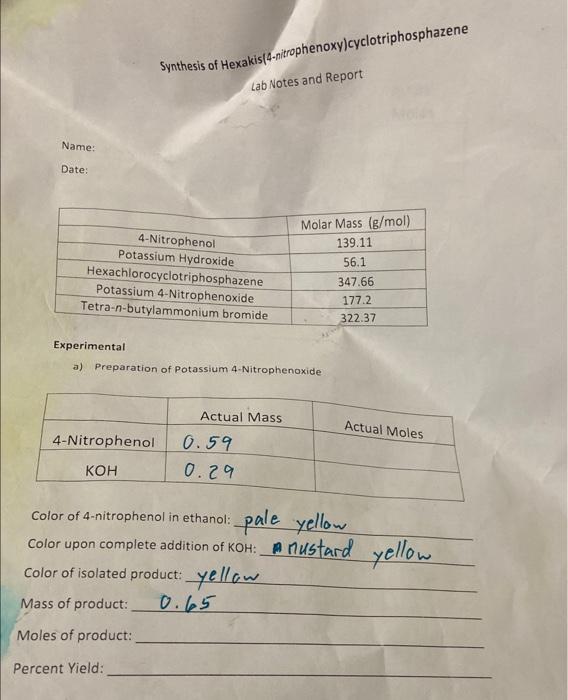 Synthesis of Hexakis(4-nitrophenoxy)cyclotriphosphazene
Lab Notes and Report
Name:
Date:
Molar Mass (g/mol)
4-Nitrophenol 139.11
Potassium Hydroxide 56.1
Hexachlorocyclotriphosphazene 347.66
Potassium 4-Nitrophenoxide 177.2
Tetra-n-butylammonium bromide 322.37
Experimental
a) Preparation of Potassium 4-Nitrophenoxide
Actual Mass Actual Moles
4-Nitrophenol 0.59
KOH 0.29
Color of 4-nitrophenol in ethanol: pale yellow
Color upon complete addition of KOH: mustard yellow
Color of isolated product: yellow
Mass of product: 0.65
Moles of product:
Percent Yield: